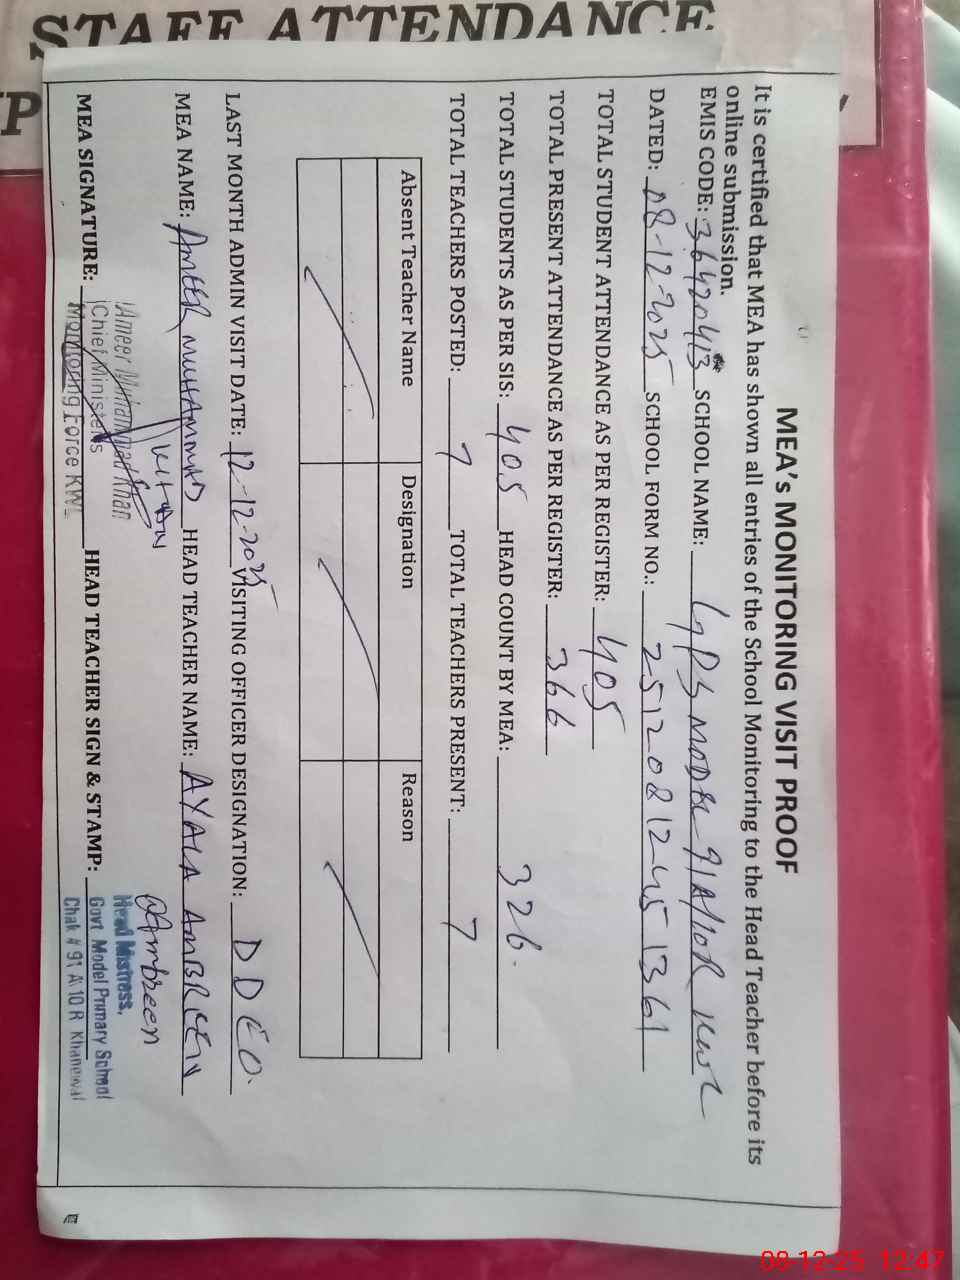 STAFF ATTENDANCE
MEA's MONITORING VISIT PROOF
It is certified that MEA has shown all entries of the School Monitoring to the Head Teacher before its
online submission.
EMIS CODE: 36420413 SCHOOL NAME: GPS MODEL 91A/10R KWL
DATED: 08-12-2025 SCHOOL FORM NO.: 2512081245 1361
TOTAL STUDENT ATTENDANCE AS PER REGISTER: 405
TOTAL PRESENT ATTENDANCE AS PER REGISTER: 366
TOTAL STUDENTS AS PER SIS: 405 HEAD COUNT BY MEA: 326.
TOTAL TEACHERS POSTED: 7 TOTAL TEACHERS PRESENT: 7
Absent Teacher Name Designation Reason
LAST MONTH ADMIN VISIT DATE: 12-12-2025 VISITING OFFICER DESIGNATION: D D E O.
MEA NAME: AMEER MUHAMMAD KHAN HEAD TEACHER NAME: AYALA AMBREEN
MEA SIGNATURE: HEAD TEACHER SIGN & STAMP:
Ameer Muhammad Khan
Chief Minister's
Monitoring Force KWL
Ambreen
Head Mistress,
Govt Model Primary School
Chak # 91 A\10 R Khanewal
08-12-25 12:47